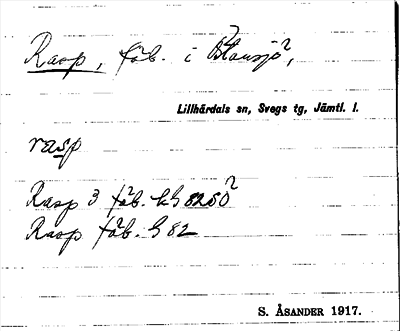 Rasp, fäb. i Blåsjö,
Lillhärdals sn, Svegs tg, Jämtl. l.
rasp
Rasp 3 fäb. LG 82SO
Rasp fäb. G 82
S. ÅSANDER 1917.